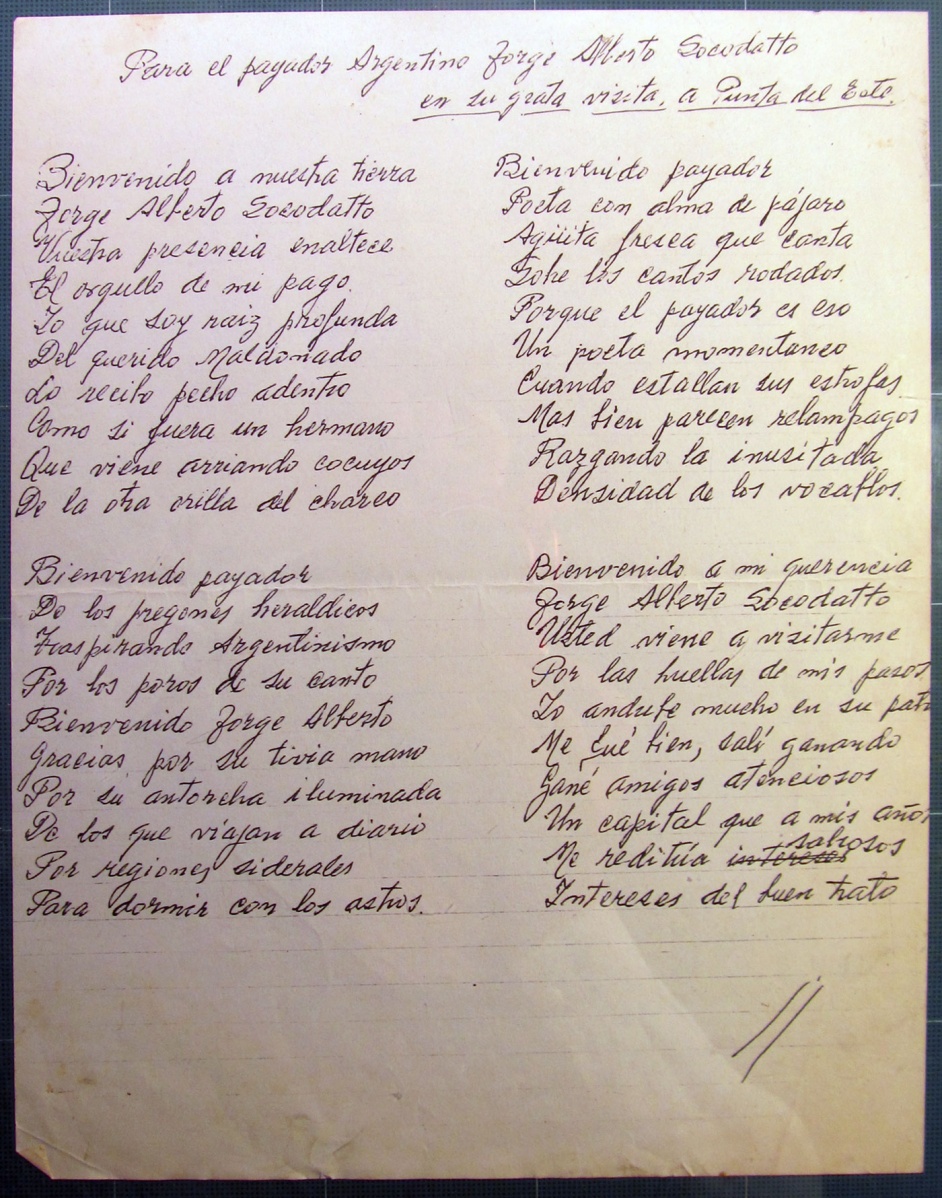 Para el payador Argentino Jorge Alberto Socodatto
en su grata visita, a Punta del Este.
Bienvenido a nuestra tierra
Jorge Alberto Socodatto
Vuestra presencia enaltece
El orgullo de mi pago.
Yo que soy raiz profunda
Del querido Maldonado
Lo recibo pecho adentro
Como si fuera un hermano
Que viene arriando cocuyos
De la otra orilla del charco
Bienvenido payador
De los pregones heraldicos
Traspirando Argentinismo
Por los poros de su canto
Bienvenido Jorge Alberto
Gracias por su tivia mano
Por su antorcha iluminada
De los que viajan a diario
Por regiones siderales
Para dormir con los astros.
Bienvenido payador
Poeta con alma de pájaro
Agüita fresca que canta
Sobre los cantos rodados.
Porque el payador es eso
Un poeta momentaneo
Cuando estallan sus estrofas
Mas bien parecen relampagos
Razgando la inusitada
Densidad de los vocablos.
Bienvenido a mi querencia
Jorge Alberto Socodatto
Usted viene a visitarme
Por las huellas de mis pasos
Yo andube mucho en su patr
Me fué bien, salí ganando
Gané amigos atenciosos
Un capital que a mis años
Me reditúa intereses sabrosos
Intereses del buen trato